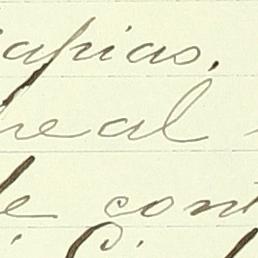 apias.
real
de cont